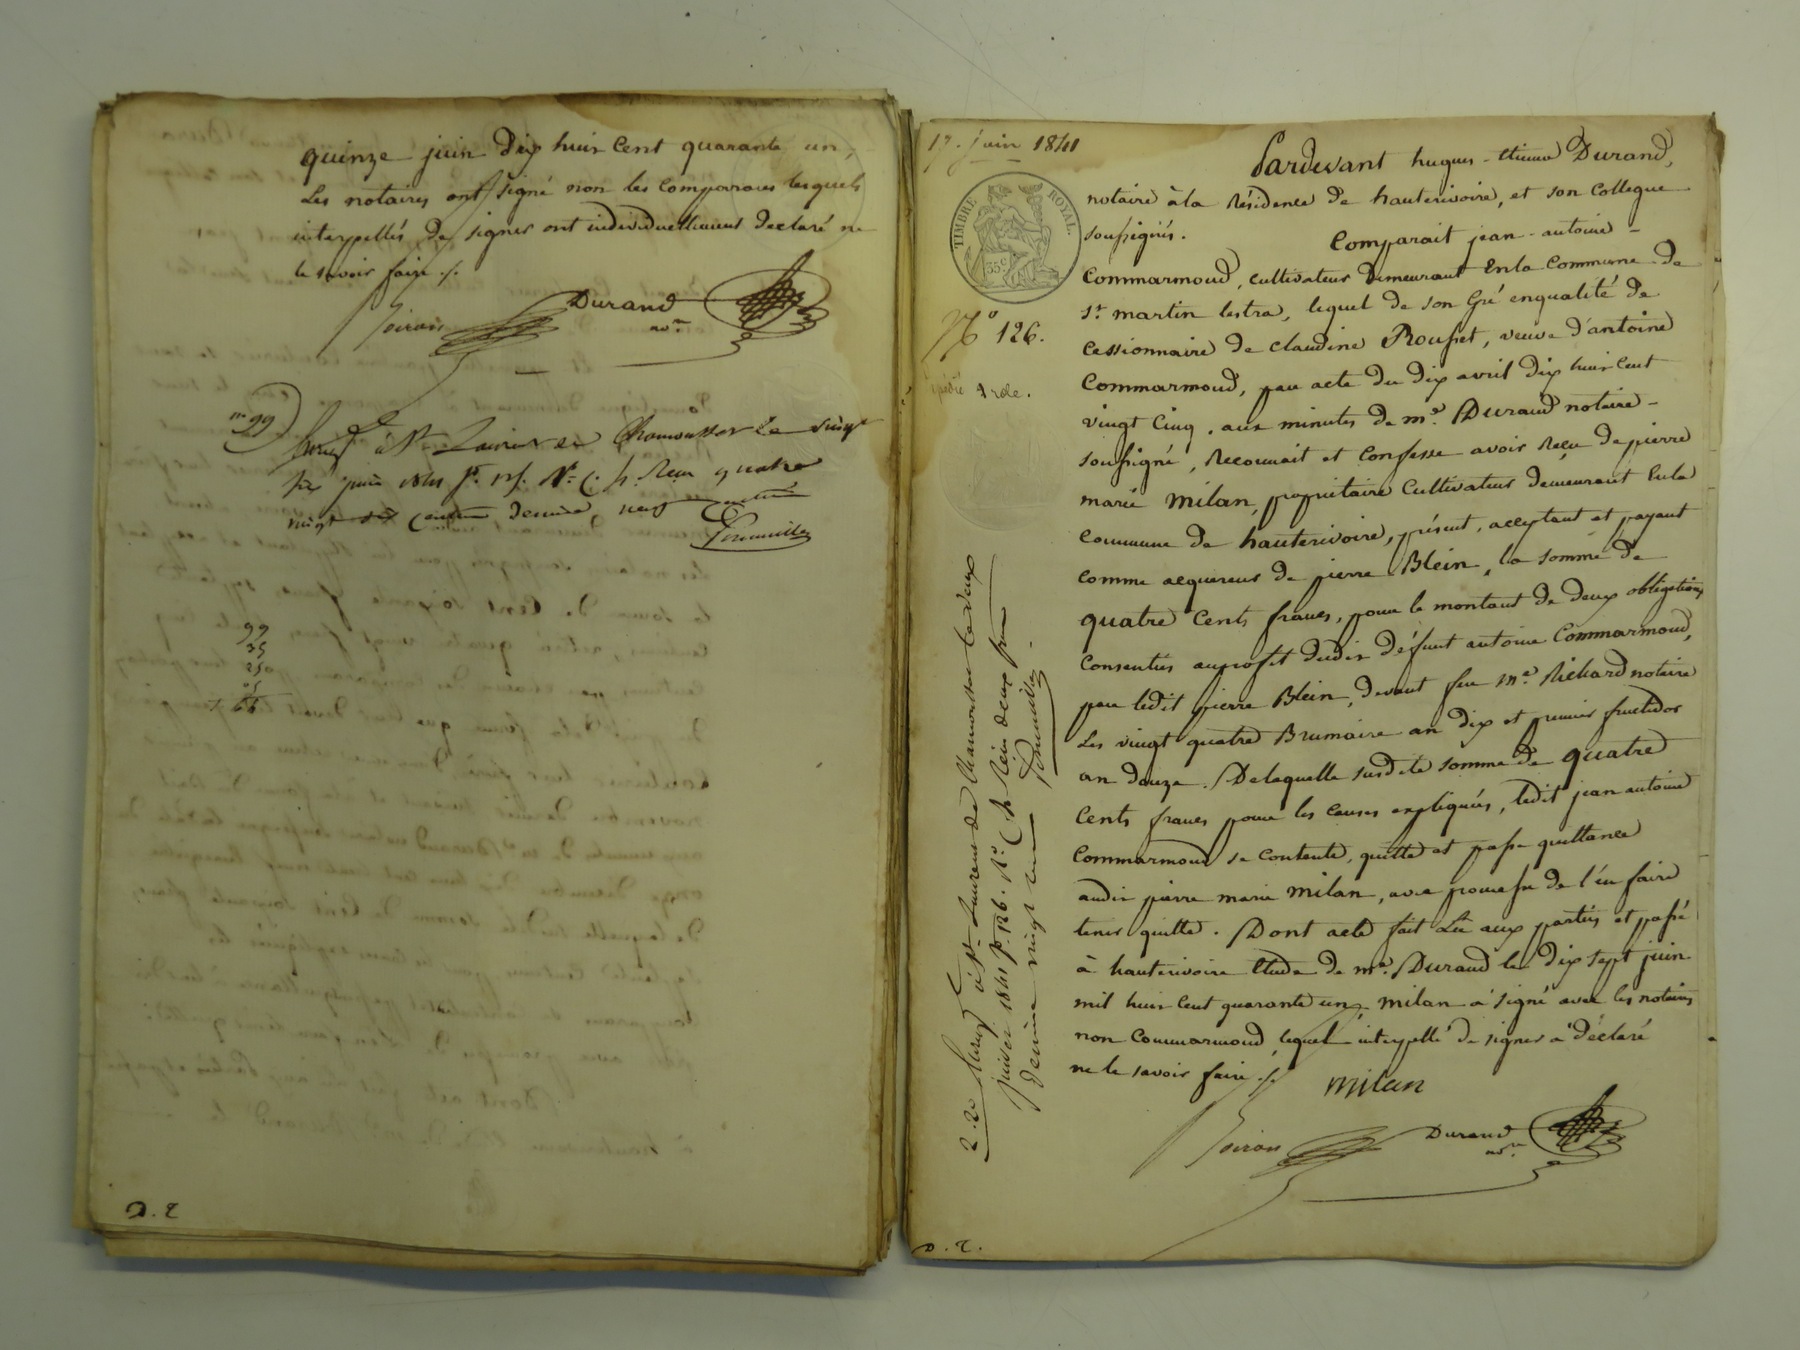 quinze juin dix huit Cent quarante un,
Les notaires ont signé non les comparans lesquels
interpellés de signer ont individuellement declaré ne
le savoir faire ./.
Durand
nore
99
à St Laurent de Chamousset le vingt
six juin 1841 fo. Ro. C. h. Reçu quatre
vingt dix centimes, decime neuf centimes
99
35
250
D. E
17. juin 1841
Pardevant hugues-etienne Durand,
notaire à la Résidence de hauterivoire, et son Collegue
soussignés.
Comparait jean-antoine-
Commarmond, cultivateur demeurant en la Commune de
St. martin lestra, lequel de son Gré en qualité de
cessionnaire de claudine Rousset, veuve d'antoine
Commarmond, par acte du dix avril dix huit Cent
vingt Cinq, aux minutes de me. Durand notaire-
soussigné, Reconnait et Confesse avoir Reçu de pierre
marie milan, propriétaire Cultivateur demeurant En la
Commune de hauterivoire, présent, acceptant et payant
comme acquereur de pierre Blein, la somme de
quatre Cents francs, pour le montant de deux obligations
Consenties au profit dudit défunt antoine Commarmond,
par ledit pierre Blein, devant feu me. Richard notaire
Les vingt quatre Brumaire an dix et premier fructidor
an douze. De laquelle susdite somme de quatre
Cents francs pour les causes expliquées, ledit jean antoine
Commarmond se Contente, quitte et passe quittance
audit pierre marie milan, avec promesse de l'en faire
tenir quitte. Dont acte fait Lu aux parties et passé
à hauterivoire Etude de me. Durand le dix sept juin
mil huit Cent quarante un, milan a signé avec les notaires
non Commarmond, lequel interpellé de signer a déclaré
ne le savoir faire ./.
milan
Durand
nore
TIMBRE ROYAL.
35c
No 126.
Expédié 1 role.
2.20
à St Laurent de Chamousset le deux
juillet 1841 fo. 126. Ro. C. h. Reçu deux francs
decime vingt
D. E.